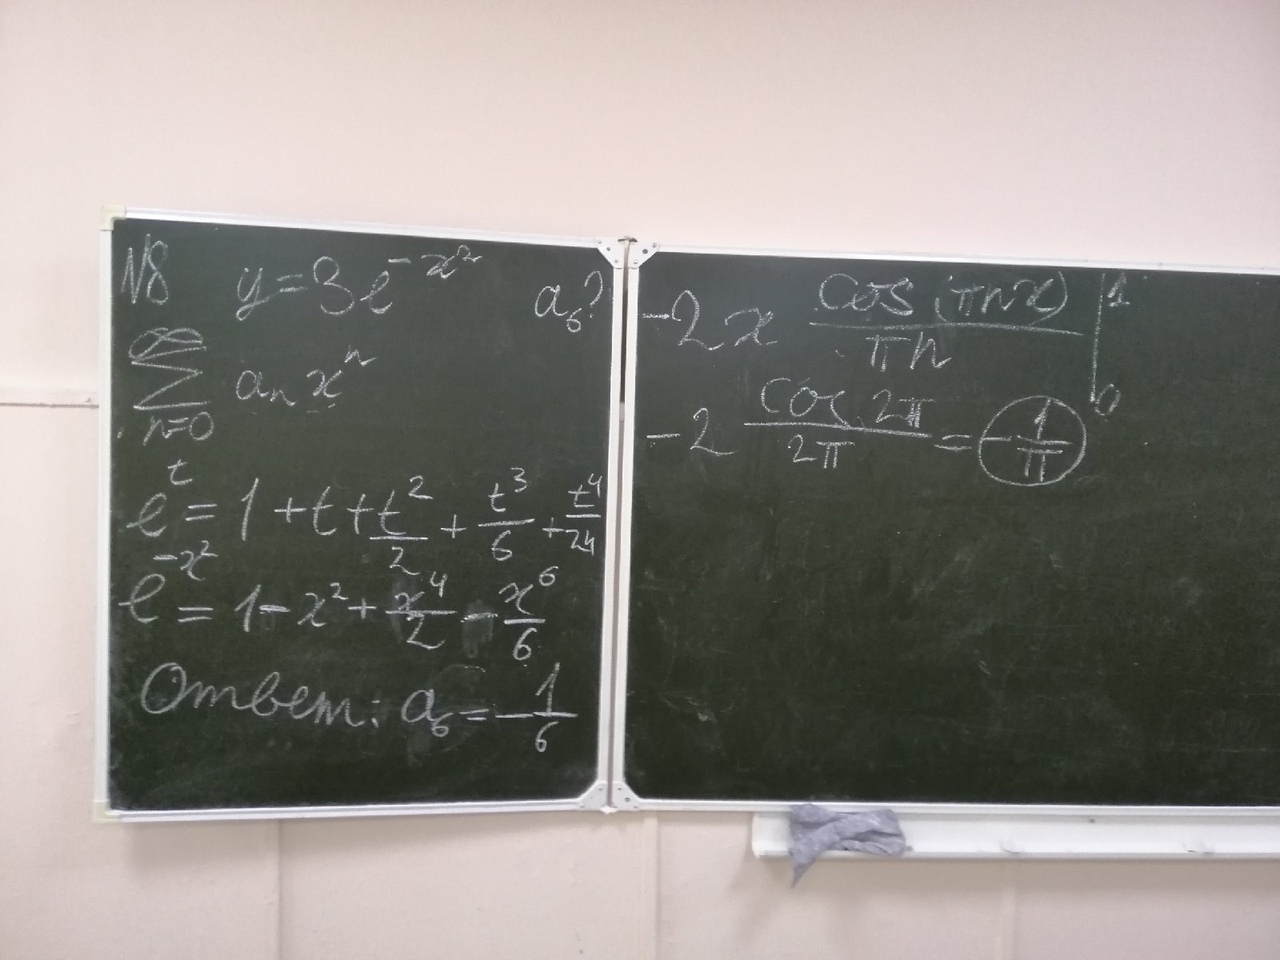 N8 y=3e^{-x^2} a_6?
\sum_{n=0}^{\infty} a_n x^n
e^t = 1+t+\frac{t^2}{2}+\frac{t^3}{6}+\frac{t^4}{24}
e^{-x^2} = 1-x^2+\frac{x^4}{2}-\frac{x^6}{6}
Ответ: a_6=-\frac{1}{6}
-2x \frac{cos(πnx)}{πn} |_0^1
-2 \frac{cos 2π}{2π} = -\frac{1}{π}